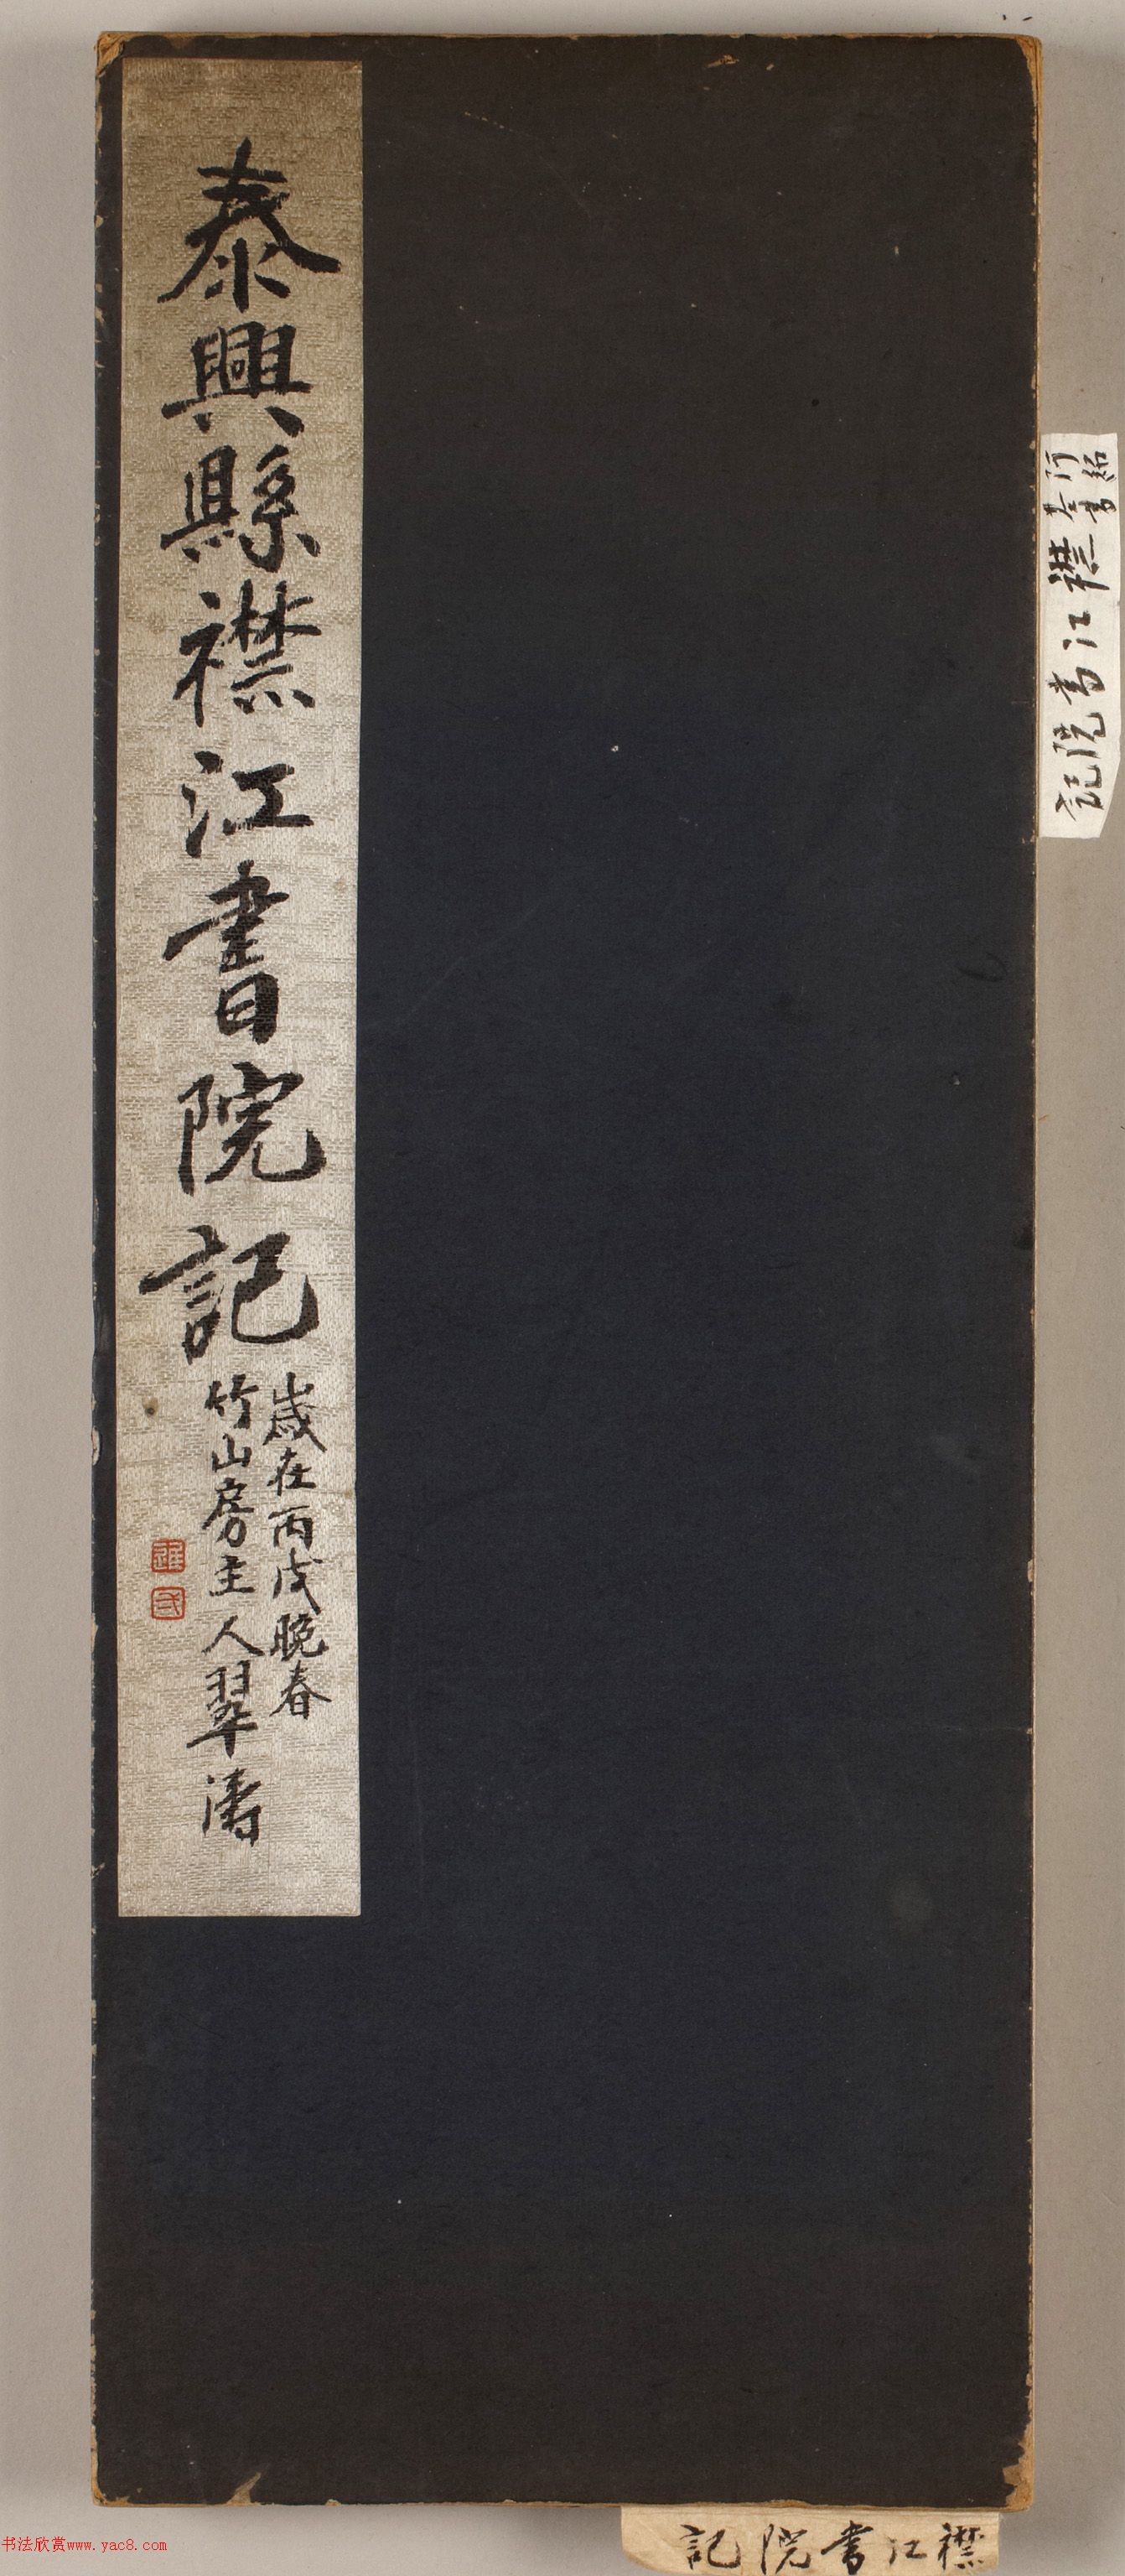 泰興縣襟江書院記
歲在丙戌晚春
竹山房主人翠濤
何紹基書
襟江書院記
襟江書院記
书法欣赏www.yac8.com